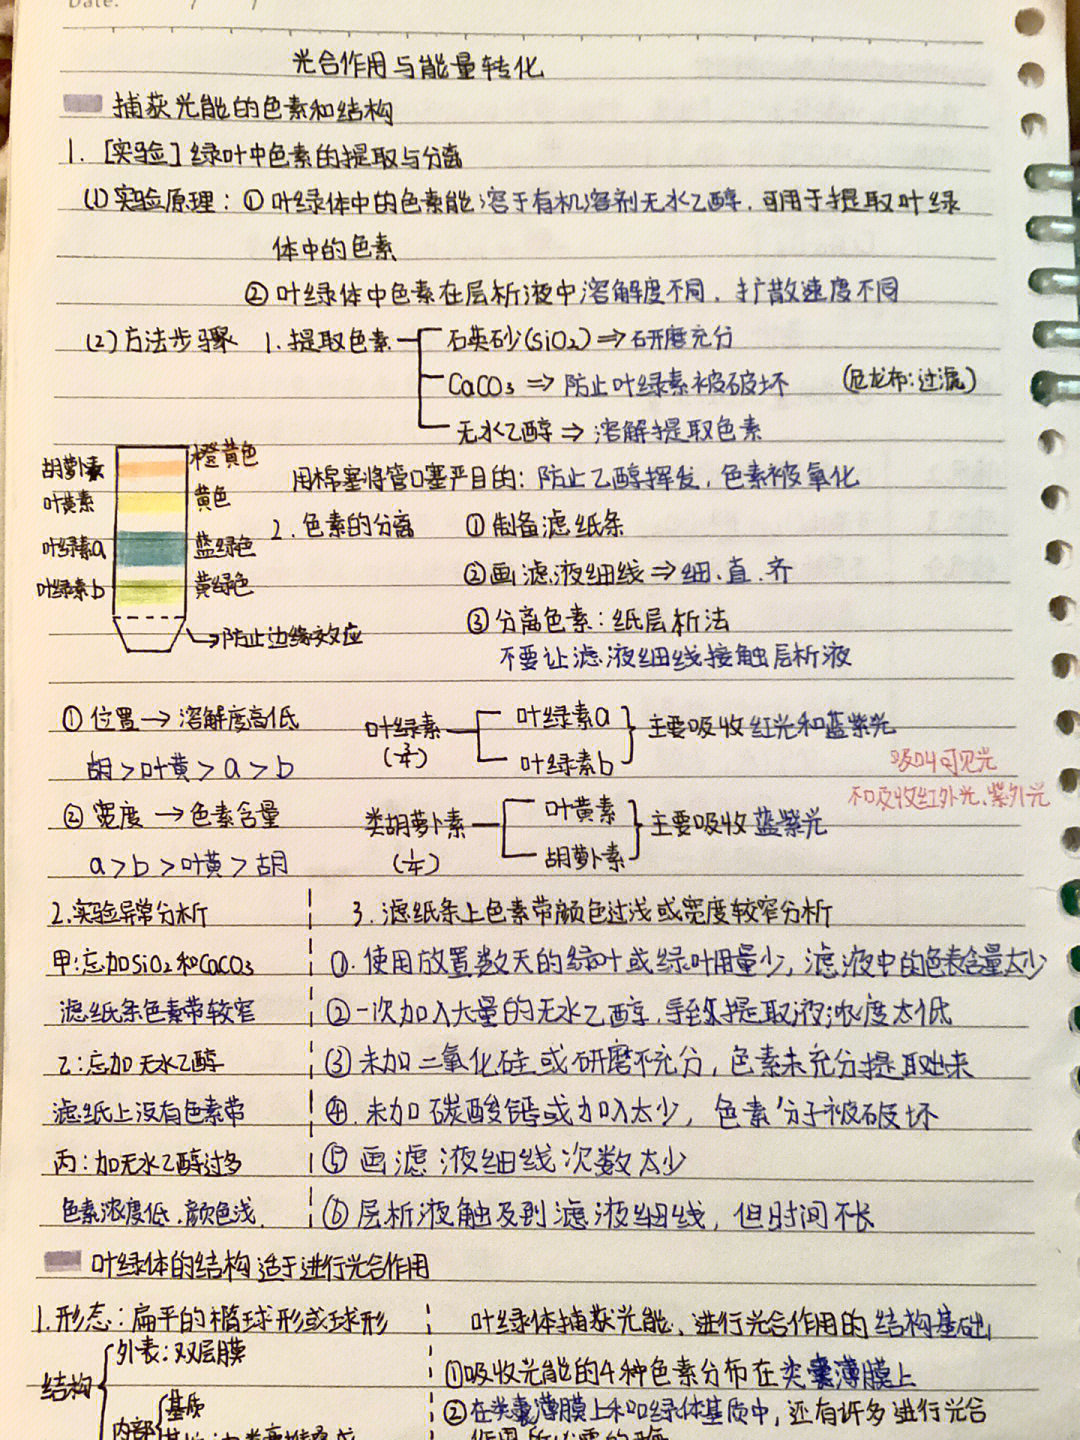 Date: / /
光合作用与能量转化
捕获光能的色素和结构
1. [实验] 绿叶中色素的提取与分离
(1)实验原理：① 叶绿体中的色素能溶于有机溶剂无水乙醇，可用于提取叶绿
体中的色素
② 叶绿体中色素在层析液中溶解度不同，扩散速度不同
(2)方法步骤 1.提取色素 石英砂(SiO2) ⇒ 研磨充分
CaCO3 ⇒ 防止叶绿素被破坏 (尼龙布:过滤)
无水乙醇 ⇒ 溶解提取色素
胡萝卜素 橙黄色
用棉塞将管口塞严目的：防止乙醇挥发，色素被氧化
叶黄素 黄色
2.色素的分离 ① 制备滤纸条
叶绿素a 蓝绿色
②画滤液细线 ⇒ 细、直、齐
叶绿素b 黄绿色
③分离色素：纸层析法
→防止边缘效应
不要让滤液细线接触层析液
① 位置 → 溶解度高低
胡 > 叶黄 > a > b
② 宽度 → 色素含量
a > b > 叶黄 > 胡
叶绿素 (3/4) 叶绿素a 叶绿素b } 主要吸收红光和蓝紫光
吸收可见光
和及收红外光、紫外光
类胡萝卜素 (1/4) 叶黄素 胡萝卜素 } 主要吸收 蓝紫光
2.实验异常分析
甲:忘加SiO2和CaCO3
滤纸条色素带较窄
乙:忘加无水乙醇
滤纸上没有色素带
丙:加无水乙醇过多
色素浓度低，颜色浅
3. 滤纸条上色素带颜色过浅或宽度较窄分析
①. 使用放置数天的绿叶或绿叶用量少，滤液中的色素含量太少
②一次加入大量的无水乙醇，导致提取液浓度太低
③ 未加二氧化硅或研磨不充分，色素未充分提取出来
④. 未加碳酸钙或加入太少，色素分子被破坏
⑤ 画滤液细线次数太少
⑥ 层析液触及到滤液细线，但时间不长
叶绿体的结构适于进行光合作用
1.形态：扁平的椭球形或球形
结构 外表:双层膜
内部 基质
叶绿体捕获光能、进行光合作用的结构基础
①吸收光能的4种色素分布在类囊薄膜上
②在类囊薄膜上和叶绿体基质中，还有许多进行光合